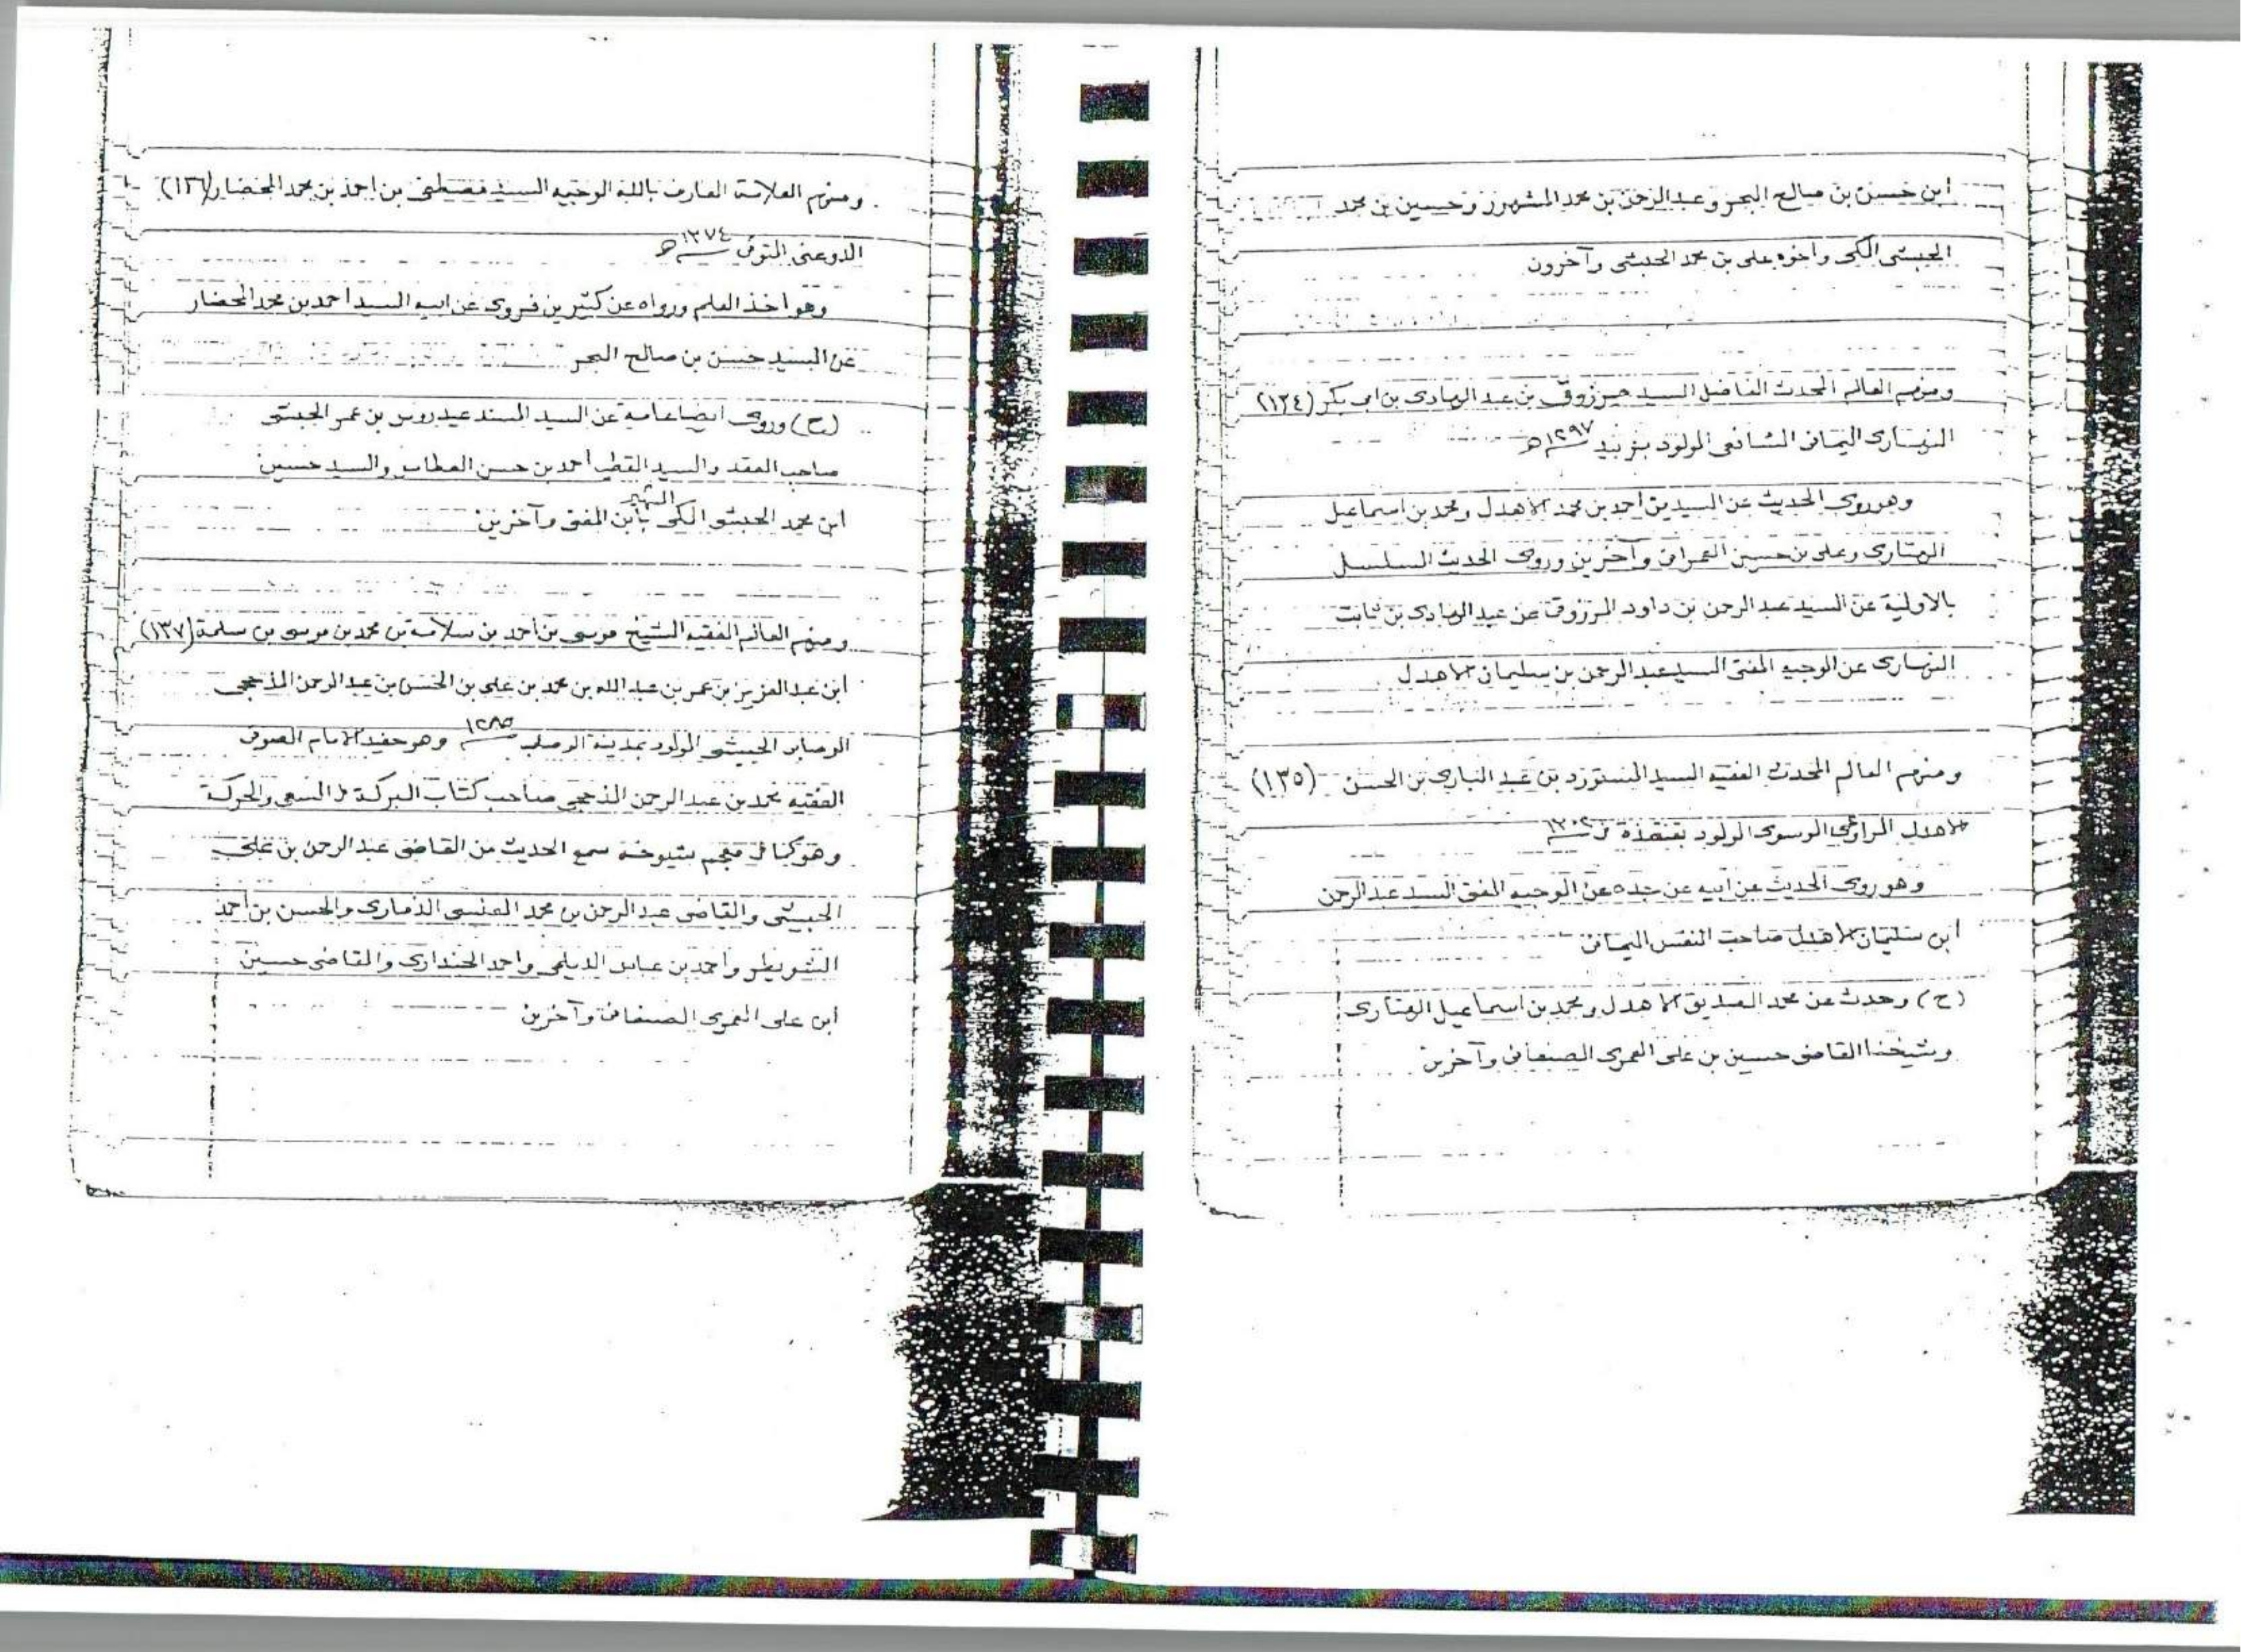 ابن حسن بن صالح البحر وعبد الرحمن بن محمد المشهور وحسين بن محمد
الحبشى المكى وأخوه على بن محمد الحبشى وآخرون
ومنهم العالم المحدث الفاضل السيد مرزوق بن عبد الهادى بن ابى بكر (١٣٤)
النهارى اليمانى الشافعى المولود بزبيد ١٢٩٧هـ
وهو روى الحديث عن السيدين أحمد بن محمد الاهدل ومحمد بن اسماعيل
الهتارى وعلى بن حسين العمرانى وآخرين وروى الحديث المسلسل
بالاولية عن السيد عبد الرحمن بن داود المرزوقى عن عبد الهادى بن ثابت
النهارى عن الوجيه المفتى السيد عبد الرحمن بن سليمان الاهدل
ومنهم العالم المحدث الفقيه السيد بن عبد البارى بن الحسن (١٣٥)
الاهدل المراوعى الموسوى المولود فى
وهو روى الحديث عن ابيه عن جده عن الوجيه المفتى السيد عبد الرحمن
ابن سليمان الاهدل صاحب النفس اليمانى
(ح) وحدث عن محمد الصديق الاهدل ومحمد بن اسماعيل الهتارى
وشيخنا القاضى حسين بن على العمرى الصنعانى وآخرين
ومنهم العلامة العارف بالله الوجيه السيد مصطفى بن احمد بن محمد المحضار (١٣٦)
الدوعنى المتوفى ١٣٧٤هـ
وهو أخذ العلم ورواه عن كثيرين فروى عن ابيه السيد أحمد بن محمد المحضار
عن السيد حسن بن صالح البحر
(ح) وروى ايضا عن السيد المسند عيدروس بن عمر الحبشى
صاحب العقد والسيد القطب أحمد بن حسن العطاس والسيد حسين
ابن محمد الحبشى المكى الشهير بابن المفتى وآخرين
ومنهم العالم الفقيه الشيخ موسى بن أحمد بن سلامة بن محمد بن موسى بن سلمة (١٣٧)
ابن عبد العزيز بن عمر بن عبد الله بن محمد بن على بن الحسن بن عبد الرحمن المذحجى
الوصابى الحبيشى المولود بمدينة الوصاب ١٢٨٥ وهو حفيد الامام الصوفى
الفقيه محمد بن عبد الرحمن المذحجى صاحب كتاب البركة فى السعى والحركة
وهو كما فى معجم شيوخه سمع الحديث من القاضى عبد الرحمن بن على
الحبيشى والقاضى عبد الرحمن بن محمد العنسى الذمارى والحسن بن أحمد
الشويطر وأحمد بن عباس الديلمى واحمد الجندارى والقاضى حسين
ابن على العمرى الصنعانى وآخرين